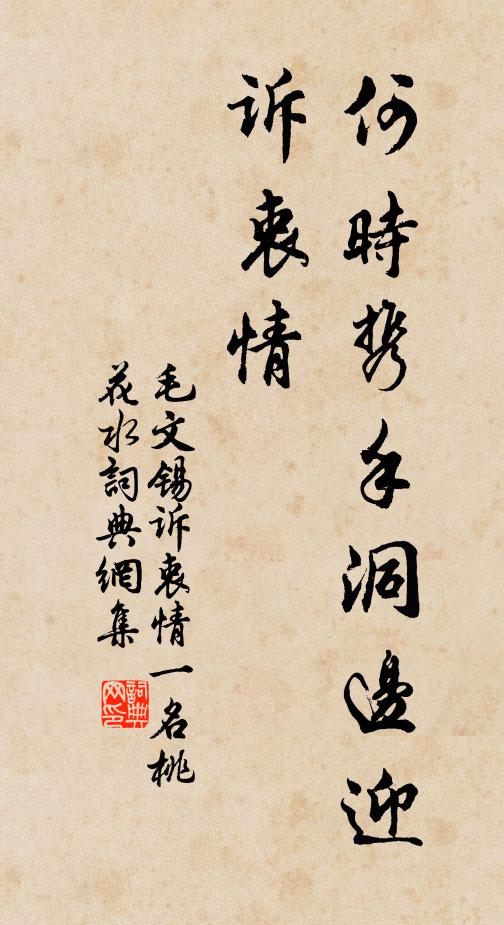 何時携手洞邊迎
訴衷情
毛文錫訴衷情一名桃
花水詞典網集
詞典
网印